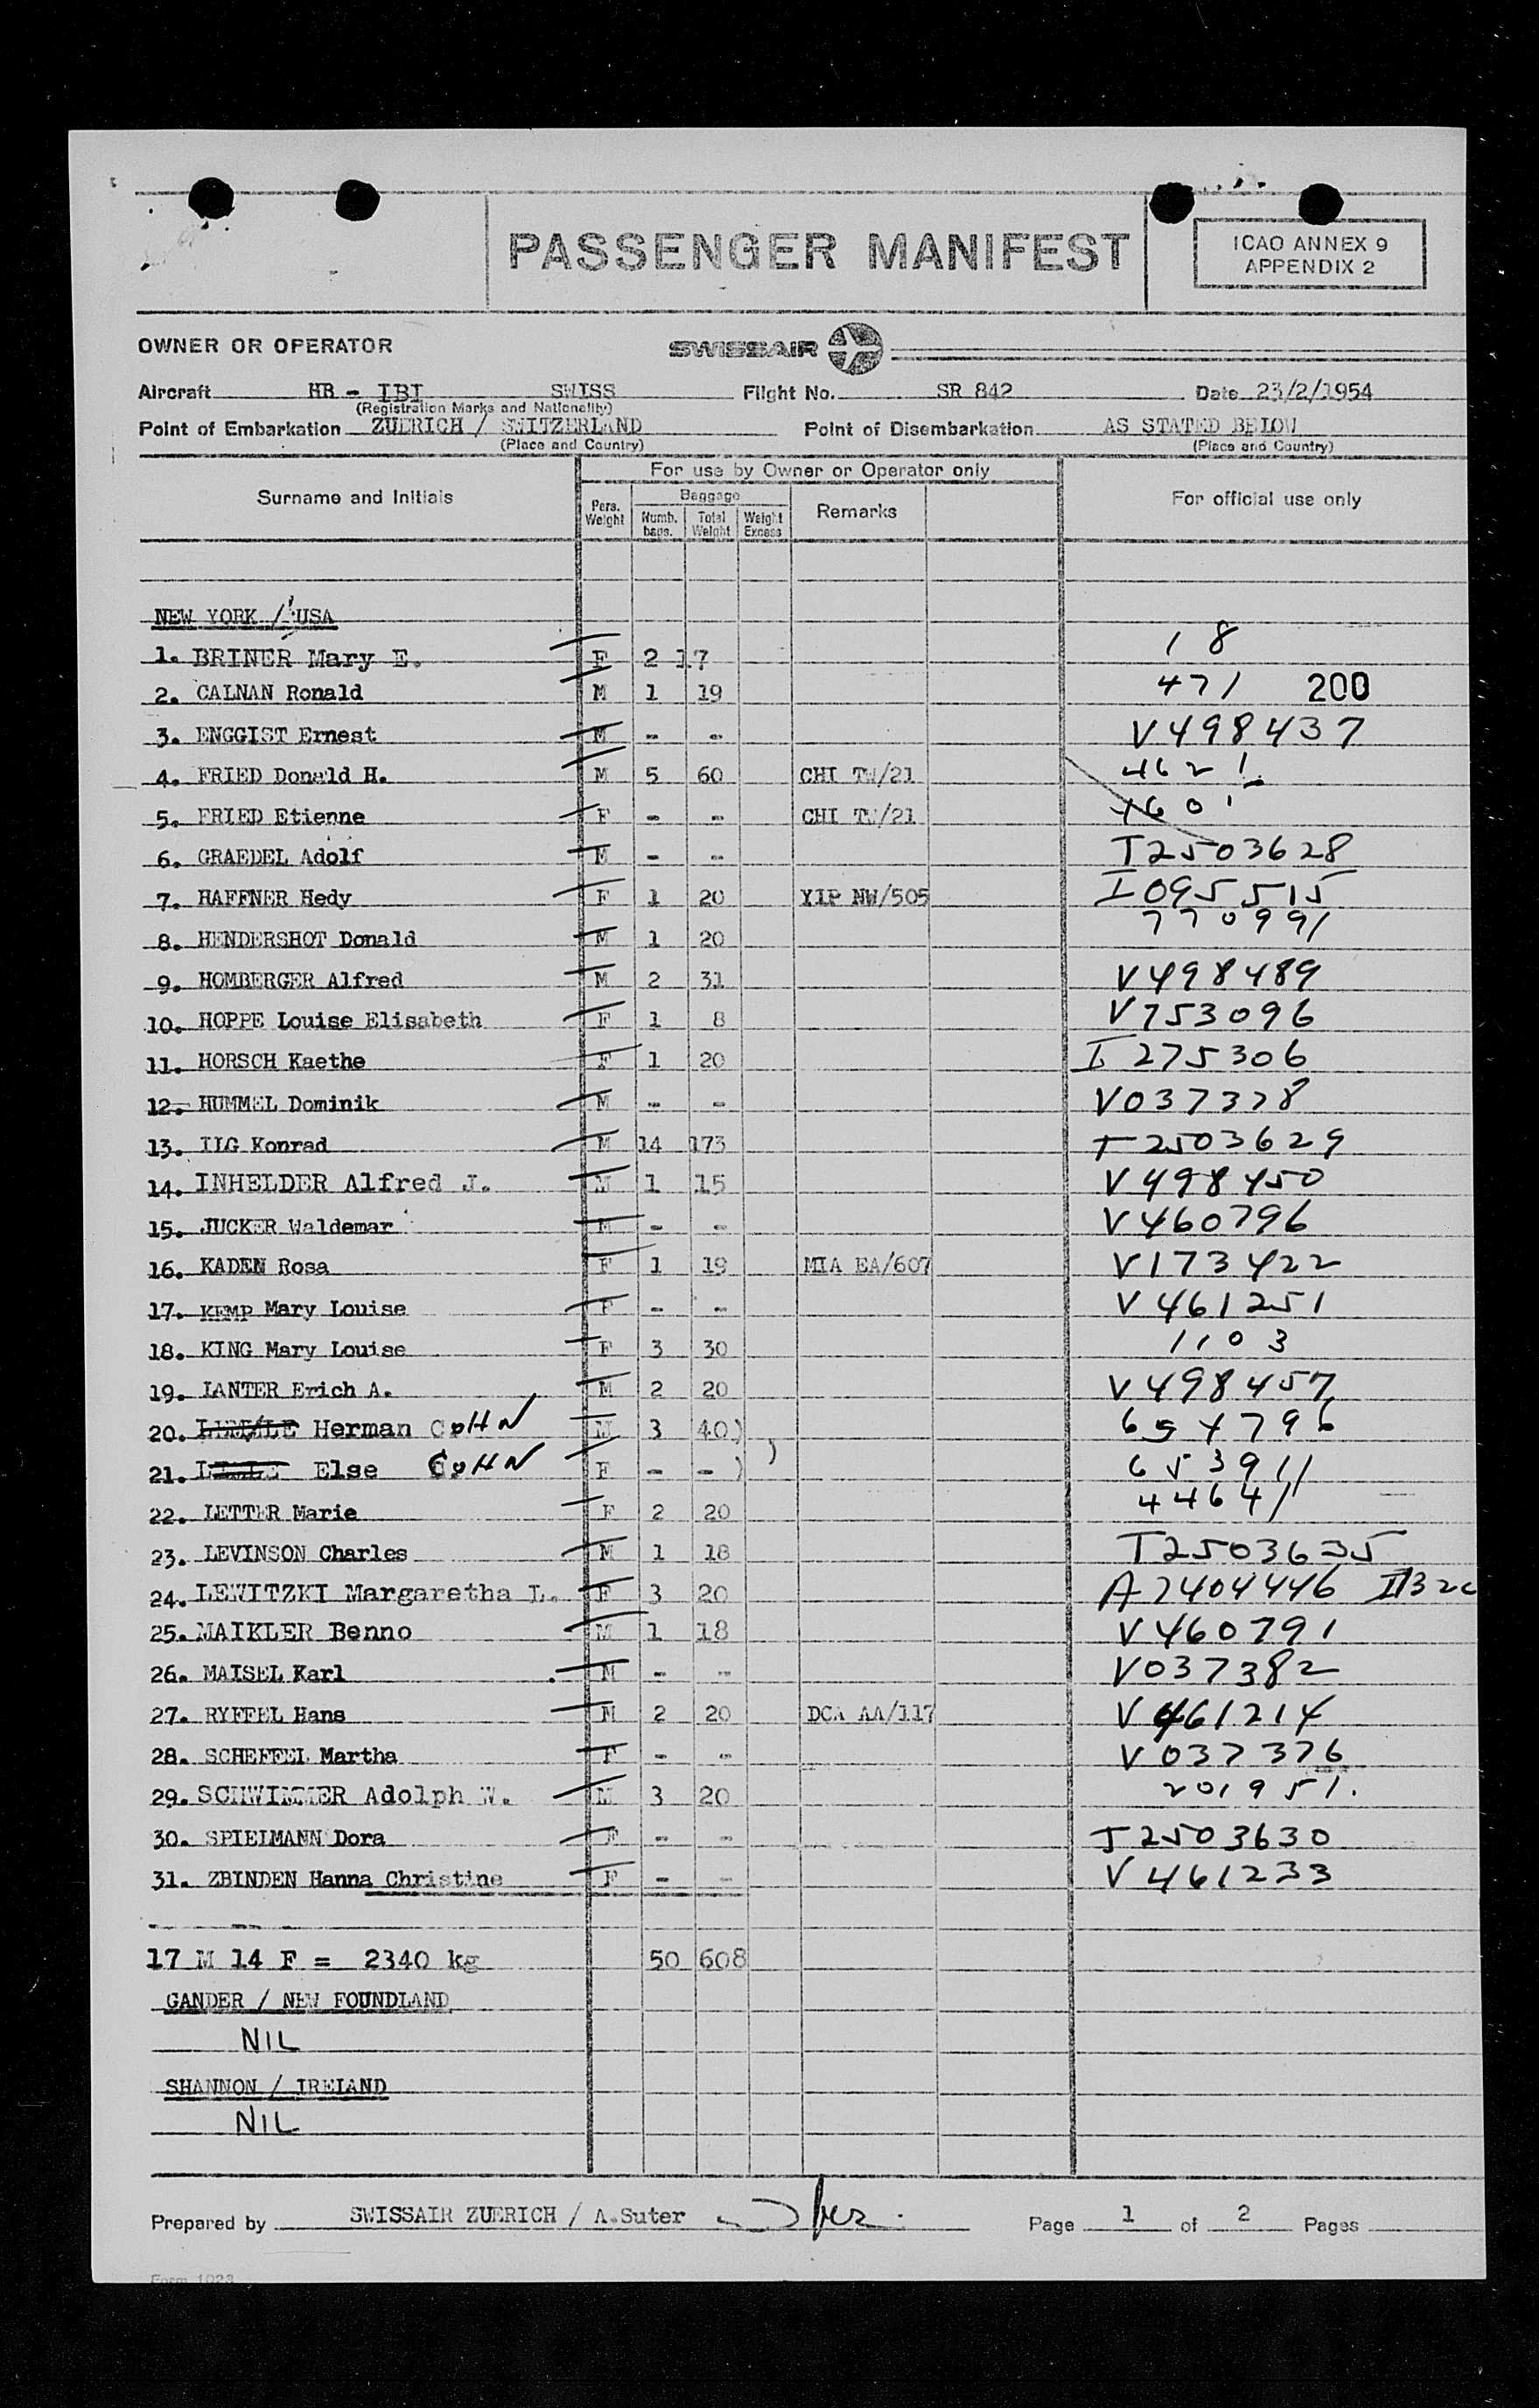 PASSENGER MANIFEST
ICAO ANNEX 9
APPENDIX 2
OWNER OR OPERATOR SWISSAIR
Aircraft HB - IBI SWISS Flight No. SR 842 Date 23/2/1954
(Registration Marks and Nationality)
Point of Embarkation ZUERICH / SWITZERLAND Point of Disembarkation AS STATED BELOW
(Place and Country) (Place and Country)
For use by Owner or Operator only
Surname and Initials Pers. Weight Baggage Numb. bags. Total Weight Weight Excess Remarks For official use only
NEW YORK / USA
1. BRINER Mary E. F 2 17 18
2. CALNAN Ronald M 1 19 471 200
3. ENGGIST Ernest M - - V498437
4. FRIED Donald H. M 5 60 CHI TW/21 4621
5. FRIED Etienne F - - CHI TW/21 4601
6. GRAEDEL Adolf M - - T2503628
7. HAFFNER Hedy F 1 20 YIP NW/505 I095515
8. HENDERSHOT Donald M 1 20 770991
9. HOMBERGER Alfred M 2 31 V498489
10. HOPPE Louise Elisabeth F 1 8 V753096
11. HORSCH Kaethe F 1 20 I275306
12. HUMMEL Dominik M - - V037378
13. ILG Konrad M 14 173 T2503629
14. INHELDER Alfred J. M 1 15 V498450
15. JUCKER Waldemar M - - V460796
16. KADEN Rosa F 1 19 MIA EA/607 V173422
17. KEMP Mary Louise F - - V461251
18. KING Mary Louise F 3 30 1103
19. LANTER Erich A. M 2 20 V498457
20. Herman COHN M 3 40) 654796
21. Else COHN F - - ) 653911
22. LETTER Marie F 2 20 44641
23. LEVINSON Charles M 1 18 T2503635
24. LEWITZKI Margaretha L. F 3 20 A7404446
25. MAIKLER Benno M 1 18 V460791
26. MAISEL Karl M - - V037382
27. RYFFEL Hans M 2 20 DCA AA/117 V461214
28. SCHEFFEL Martha F - - V037376
29. SCHWIMMER Adolph W. M 3 20 201951.
30. SPIELMANN Dora F - - T2503630
31. ZBINDEN Hanna Christine F - - V461233
17 M 14 F = 2340 kg 50 608
GANDER / NEW FOUNDLAND
NIL
SHANNON / IRELAND
NIL
Prepared by SWISSAIR ZUERICH / A.Suter Page 1 of 2 Pages
Form 1023